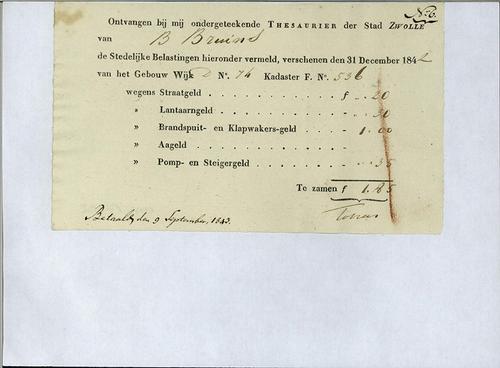 No. 6.
Ontvangen bij mij ondergeteekende THESAURIER der Stad ZWOLLE
van B Bruins
de Stedelijke Belastingen hieronder vermeld, verschenen den 31 December 1842
van het Gebouw Wijk D No. 74 Kadaster F. No. 536
wegens Straatgeld . . . . . . . . . f - . 20
» Lantaarngeld . . . . . . . - . . 30
» Brandspuit- en Klapwakers-geld . . . . - 1.00
» Aageld . . . . . . . . . . -
» Pomp- en Steigergeld . . . . . . . - . . 35
Te zamen f 1.85
Betaald den 9 September 1843.